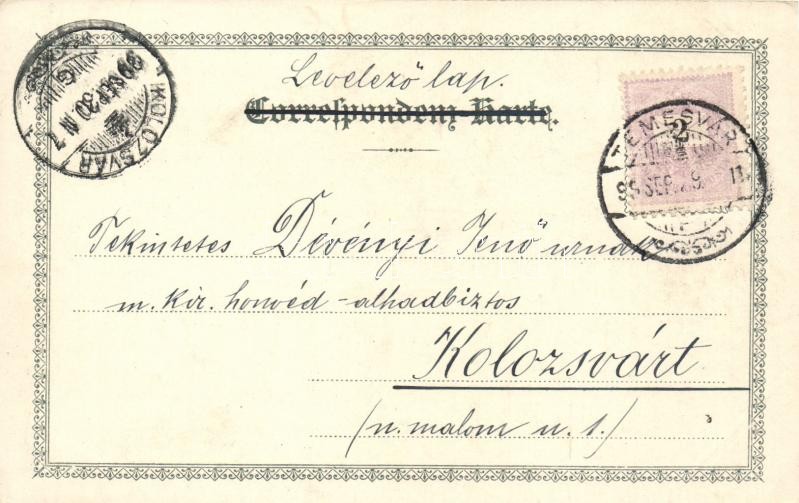 Levelező lap.
Correspondenz Karte.
KOLOZSVÁR
99 SEP. 30 N 7
2
TEMESVÁR
99 SEP. 29
Tekintetes Dévényi Jenő urnak
m. kir. honvéd-alhadbiztos
Kolozsvárt
(n. malom u. 1.)